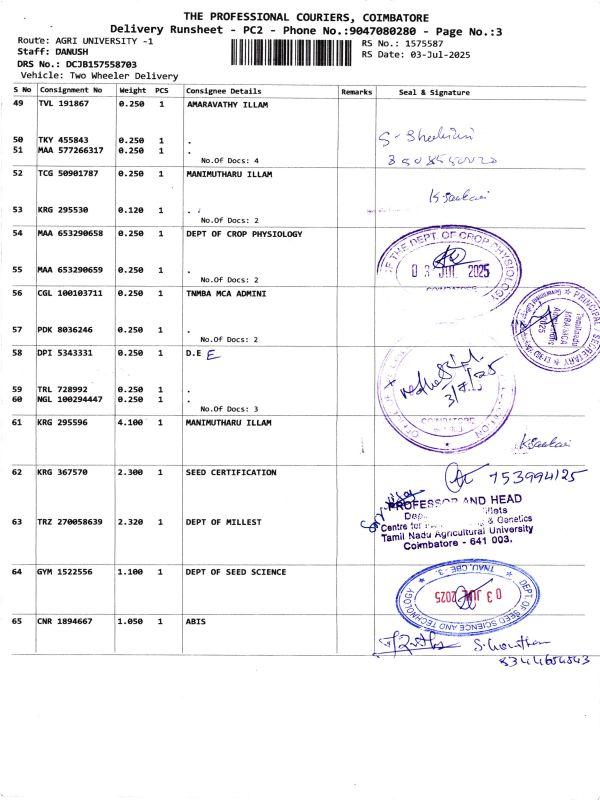 THE PROFESSIONAL COURIERS, COIMBATORE
Delivery Runsheet - PC2 - Phone No.:9047080280 - Page No.:3
Route: AGRI UNIVERSITY -1
RS No.: 1575587
Staff: DANUSH
RS Date: 03-Jul-2025
DRS No.: DCJB157558703
Vehicle: Two Wheeler Delivery
S No Consignment No Weight PCS Consignee Details Remarks Seal & Signature
49 TVL 191867 0.250 1 AMARAVATHY ILLAM
50 TKY 455843 0.250 1 .
51 MAA 577266317 0.250 1 .
No.Of Docs: 4
52 TCG 50901787 0.250 1 MANIMUTHARU ILLAM
53 KRG 295530 0.120 1 .
No.Of Docs: 2
54 MAA 653290658 0.250 1 DEPT OF CROP PHYSIOLOGY
OF THE DEPT. OF CROP PHYSIOLOGY
03 JUL 2025
COIMBATORE
55 MAA 653290659 0.250 1 .
No.Of Docs: 2
56 CGL 100103711 0.250 1 TNMBA MCA ADMINI
PRINCIPAL SECRETARY
57 PDK 8036246 0.250 1 .
No.Of Docs: 2
58 DPI 5343331 0.250 1 D.E E
3/7/25
COIMBATORE
59 TRL 728992 0.250 1 .
60 NGL 100294447 0.250 1 .
No.Of Docs: 3
61 KRG 295596 4.100 1 MANIMUTHARU ILLAM
62 KRG 367570 2.300 1 SEED CERTIFICATION
753994125
PROFESSOR AND HEAD
63 TRZ 270058639 2.320 1 DEPT OF MILLEST
Centre for & Genetics
Tamil Nadu Agricultural University
Coimbatore - 641 003.
64 GYM 1522556 1.100 1 DEPT OF SEED SCIENCE
TNAU, CBE - 3.
03 JUL 2025
DEPT. OF SEED SCIENCE AND TECHNOLOGY
65 CNR 1894667 1.050 1 ABIS
8344654543